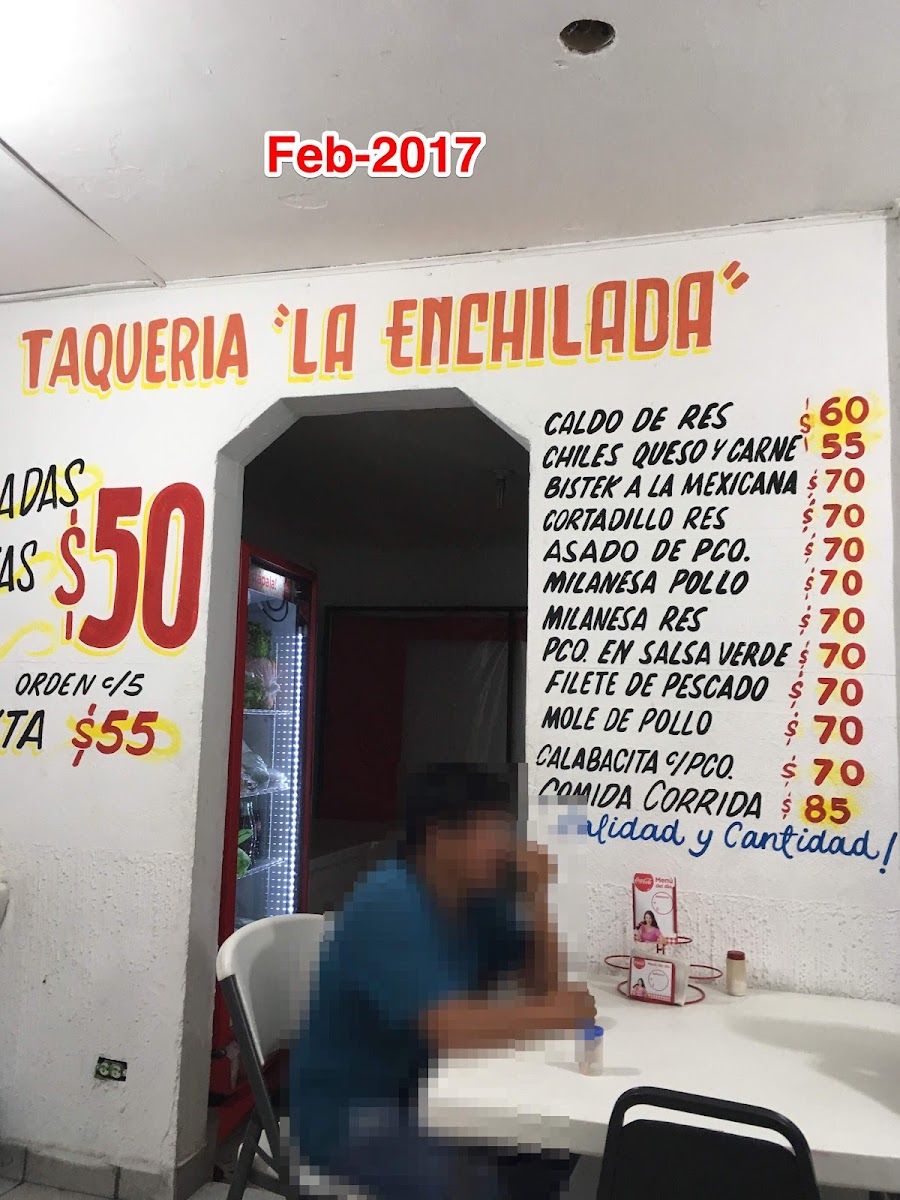 Feb-2017
TAQUERIA "LA ENCHILADA"
ADAS
AS $50
ORDEN c/5
TA $55
CALDO DE RES $60
CHILES QUESO Y CARNE $55
BISTEK A LA MEXICANA $70
CORTADILLO RES $70
ASADO DE PCO. $70
MILANESA POLLO $70
MILANESA RES $70
PCO. EN SALSA VERDE $70
FILETE DE PESCADO $70
MOLE DE POLLO $70
CALABACITA c/PCO. $70
COMIDA CORRIDA $85
alidad y Cantidad!
Coca-Cola Menú
del día
Menú del día